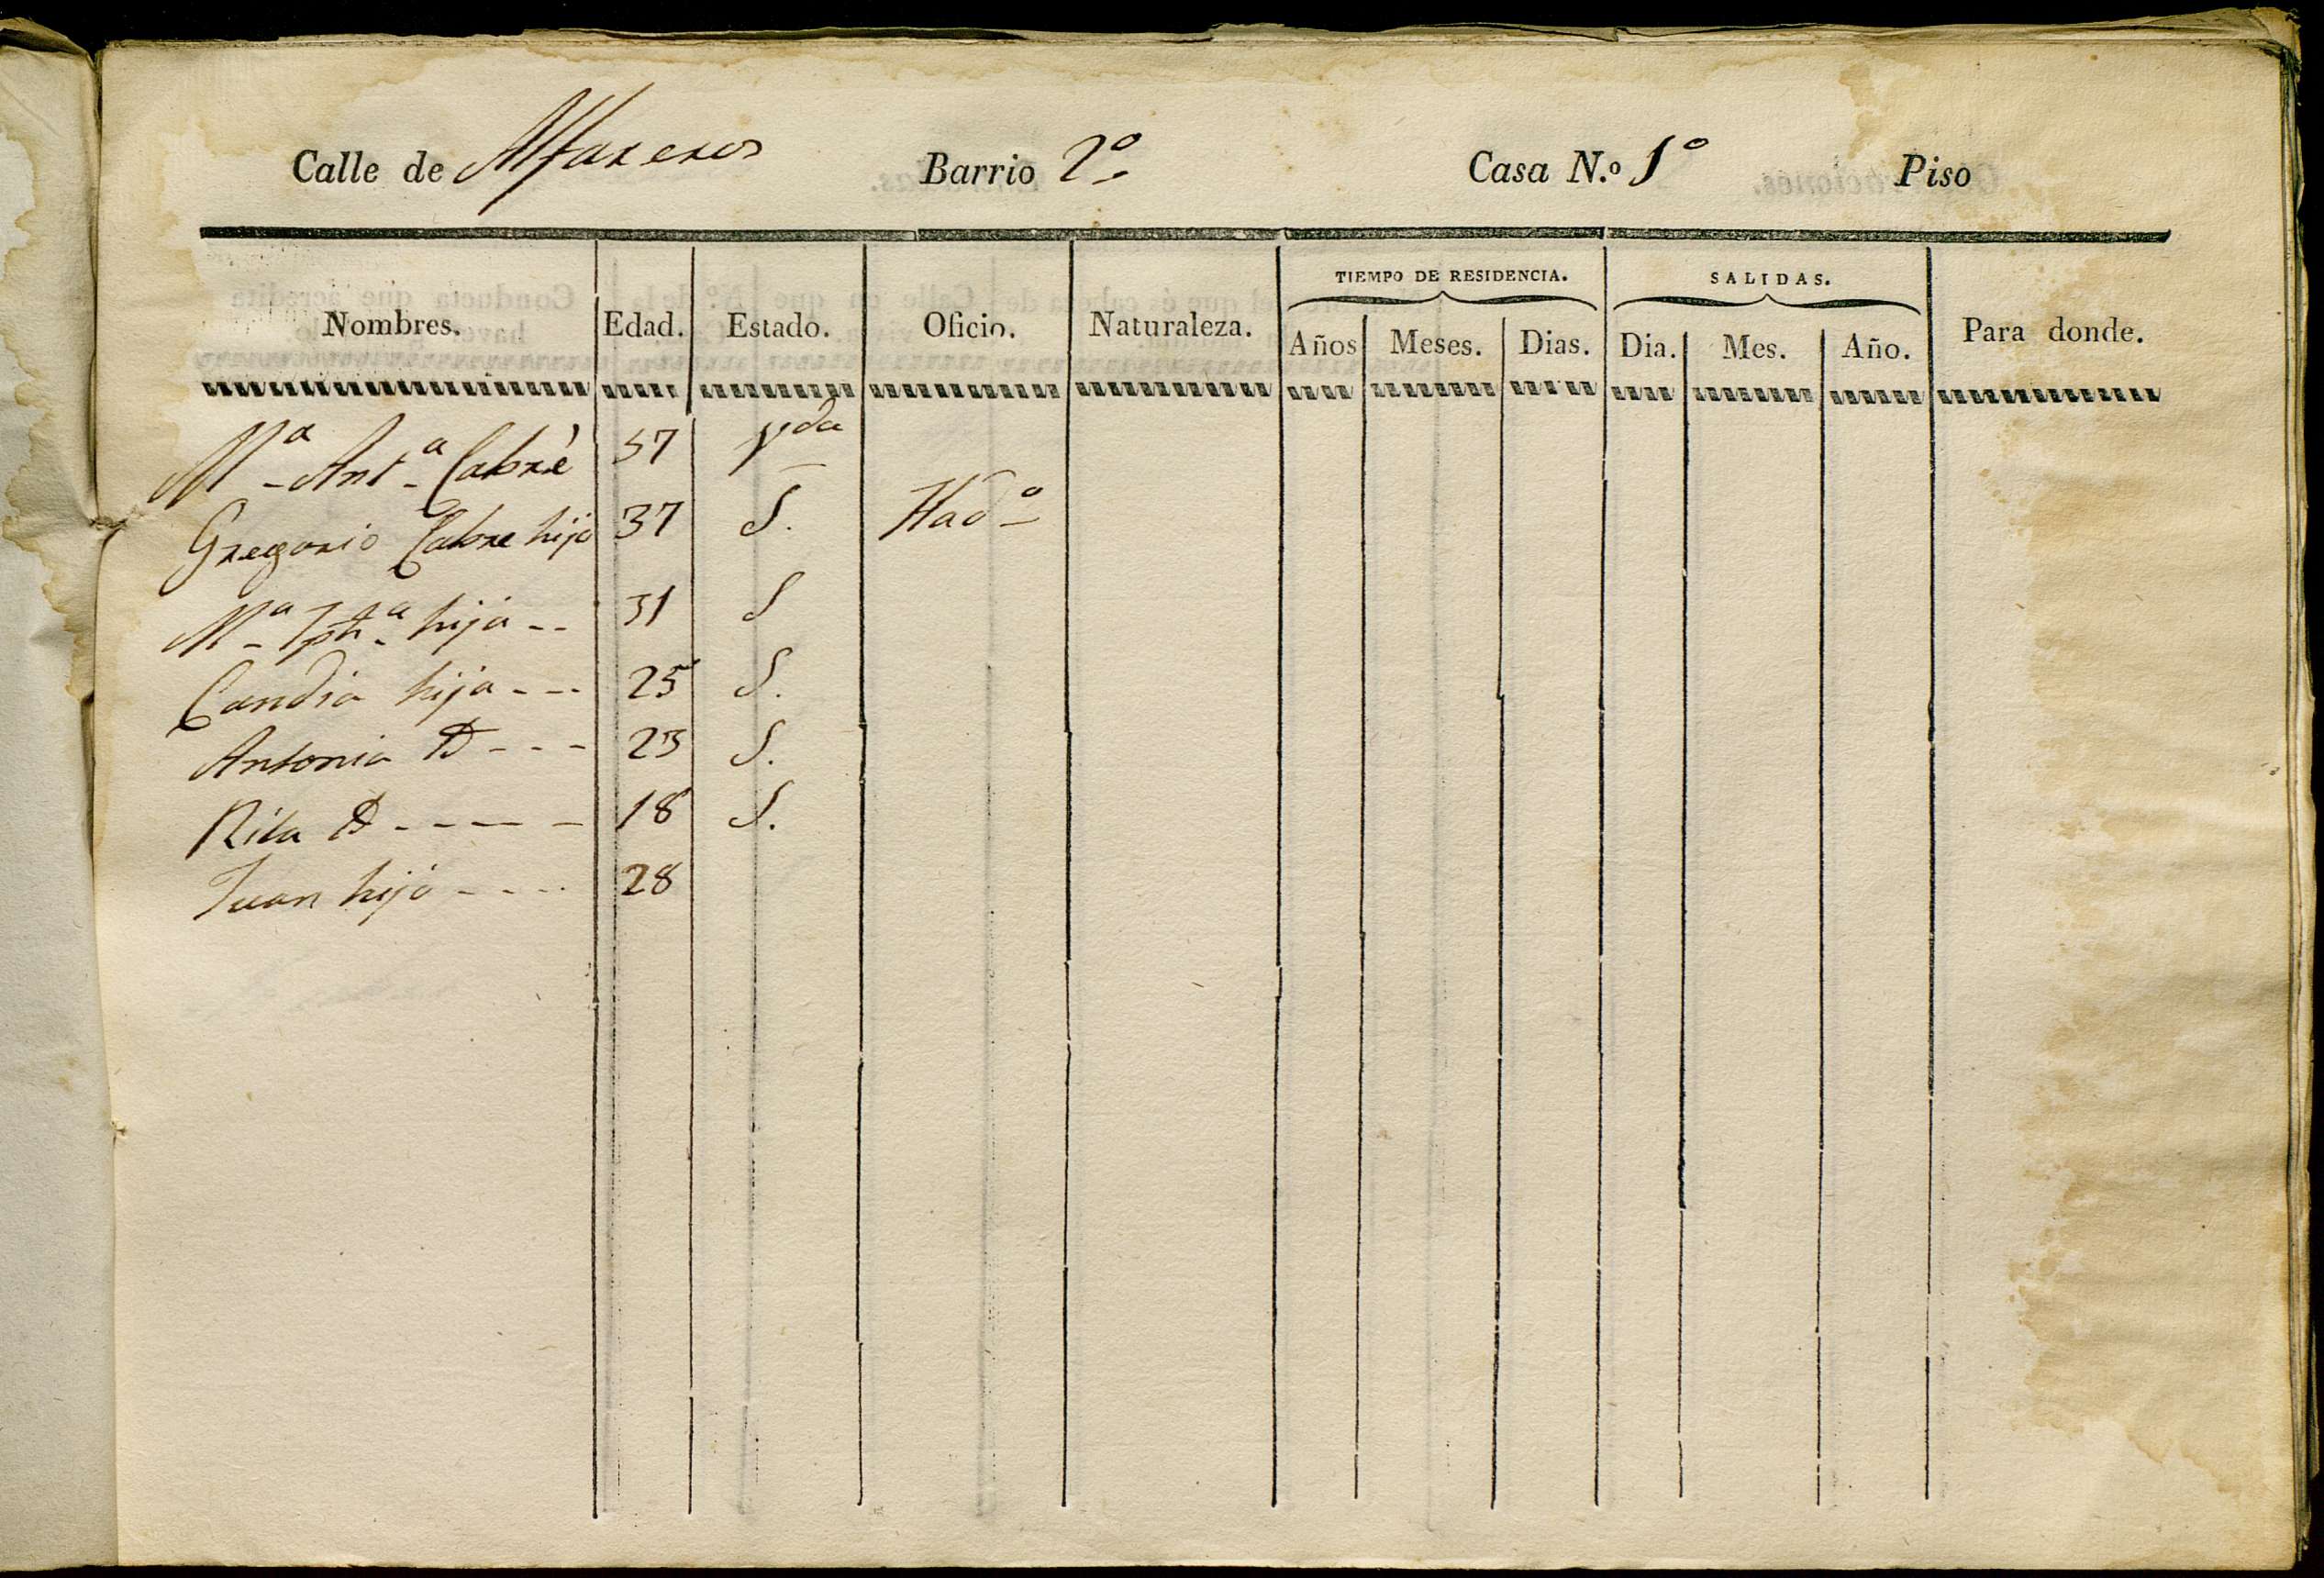 Calle de Alfareros Barrio 2º Casa N.º 1º Piso
TIEMPO DE RESIDENCIA. SALIDAS.
Nombres. Edad. Estado. Oficio. Naturaleza. Años Meses. Dias. Dia. Mes. Año. Para donde.
Mª Antª Cabrè 57 Vda
Gregorio Cabre hijo 37 S. Hadº
Mª Jphª hija -- 31 S
Candia hija --- 25 S.
Antonia D --- 23 S.
Rita D ----- 18 S.
Juan hijo ---- 28